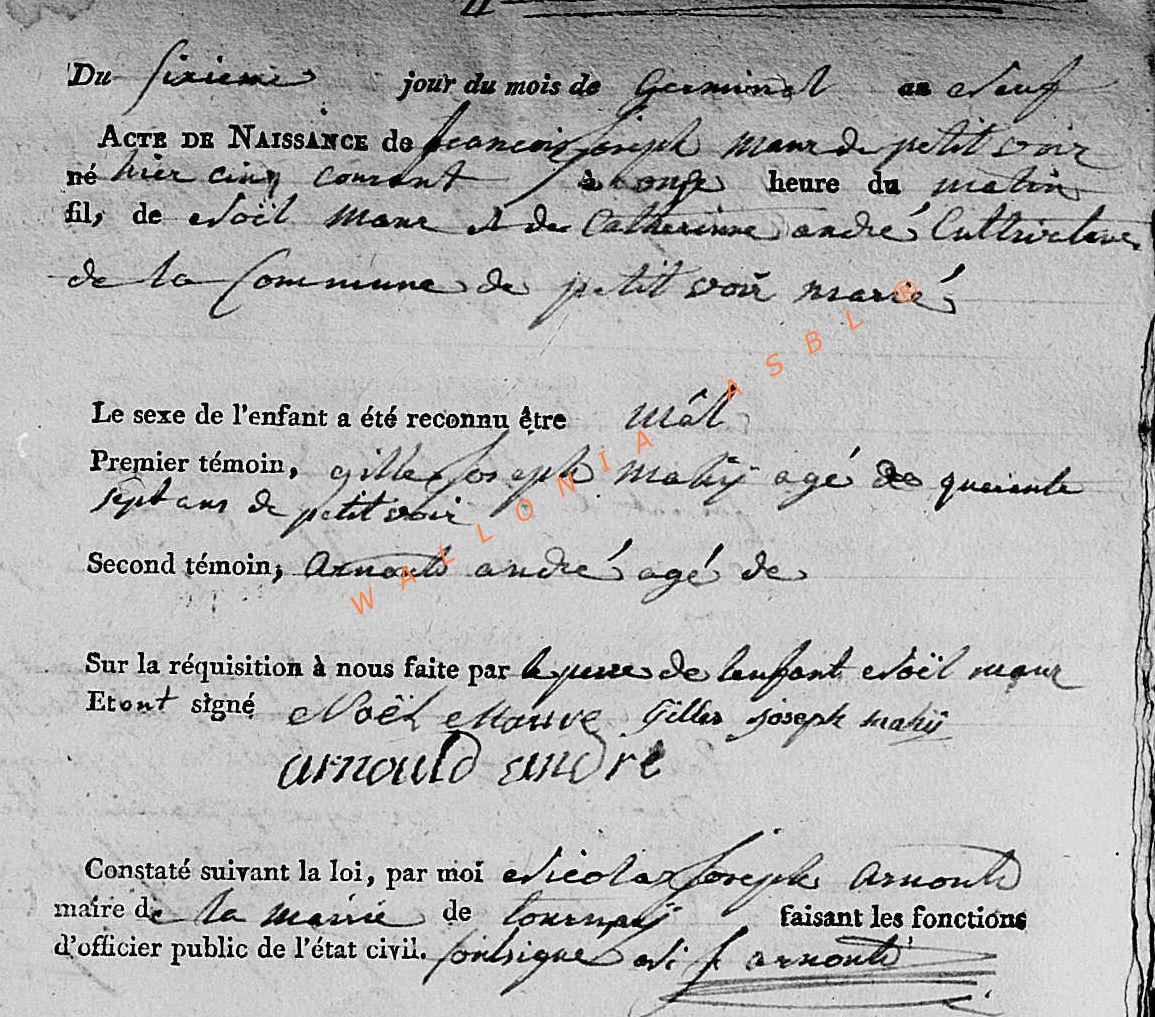 Du sixieme jour du mois de Germinal an neuf
ACTE DE NAISSANCE de françois joseph maur de petit voir
né hier cinq courant à onze heure du matin
fils de Noël maur et de Catherinne andré Cultivateur
de la Commune de petit voir marié
Le sexe de l'enfant a été reconnu être mâl
Premier témoin, gille joseph mahÿ agé de quarante
sept ans de petit voir
Second témoin, Arnould andré agé de
Sur la réquisition à nous faite par le pere de lenfant Noël maur
Et ont signé Noël Mauve Gilles joseph mahÿ
arnould andre
Constaté suivant la loi, par moi Nicolas joseph Arnould
maire de la mairie de tournaÿ faisant les fonctions
d'officier public de l'état civil. soussigné N j arnould
WALLONIA ASBL ®